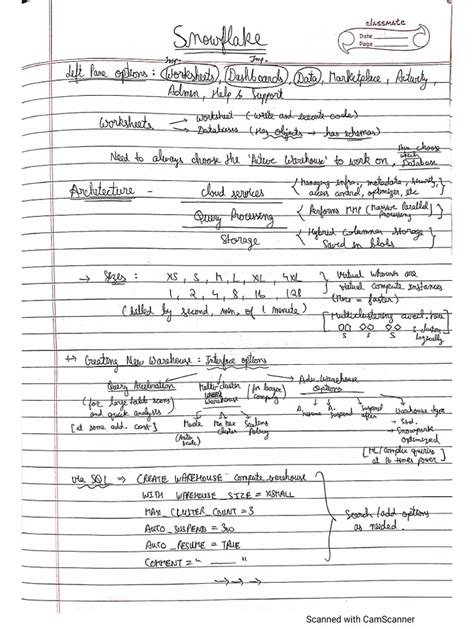 classmate
Date
Page
Snowflake
Imp. Imp.
Left Pane options : Worksheets, Dashboards, Data, Marketplace, Activity,
Admin, Help & Support
Worksheets → Worksheet (Write and execute code)
→ Databases (Has objects → has schemas)
choose which Database
Need to always choose the 'Active Warehouse' to work on,
Architecture - Cloud services { Managing infra, metadata, security, access control, optimizer, etc
Query Processing { Performs MMP (Massive Parallel) Processing
Storage { Hybrid Columnar Storage Saved in blobs
→ Sizes : XS, S, M, L, XL, 4XL
1, 2, 4, 8, 16, 128
(billed by second, min. of 1 minute)
{ Virtual are virtual compute instances
(More = faster)
[Multiclustering here]
S S S
logically
↔ Creating New Warehouse : Interface options
Query Acceleration
(for large table scans)
and quick analysis)
[at some add. cost]
Multi-cluster Warehouse (for larger company)
Mode
(Auto scale)
Max cluster
Scaling Policy
Adv. Warehouse options
A. Resume
A. Suspend
Suspend after
Warehouse type
- Std.
- Snowpark Optimized
[ML/Complex queries
at 16 times power]
via SQL ⇒ CREATE WAREHOUSE compute_warehouse
WITH WAREHOUSE_SIZE = XSMALL
MAX_CLUSTER_COUNT = 3
AUTO_SUSPEND = 300
AUTO_RESUME = TRUE
COMMENT = " "
Search/add options
as needed.
Scanned with CamScanner